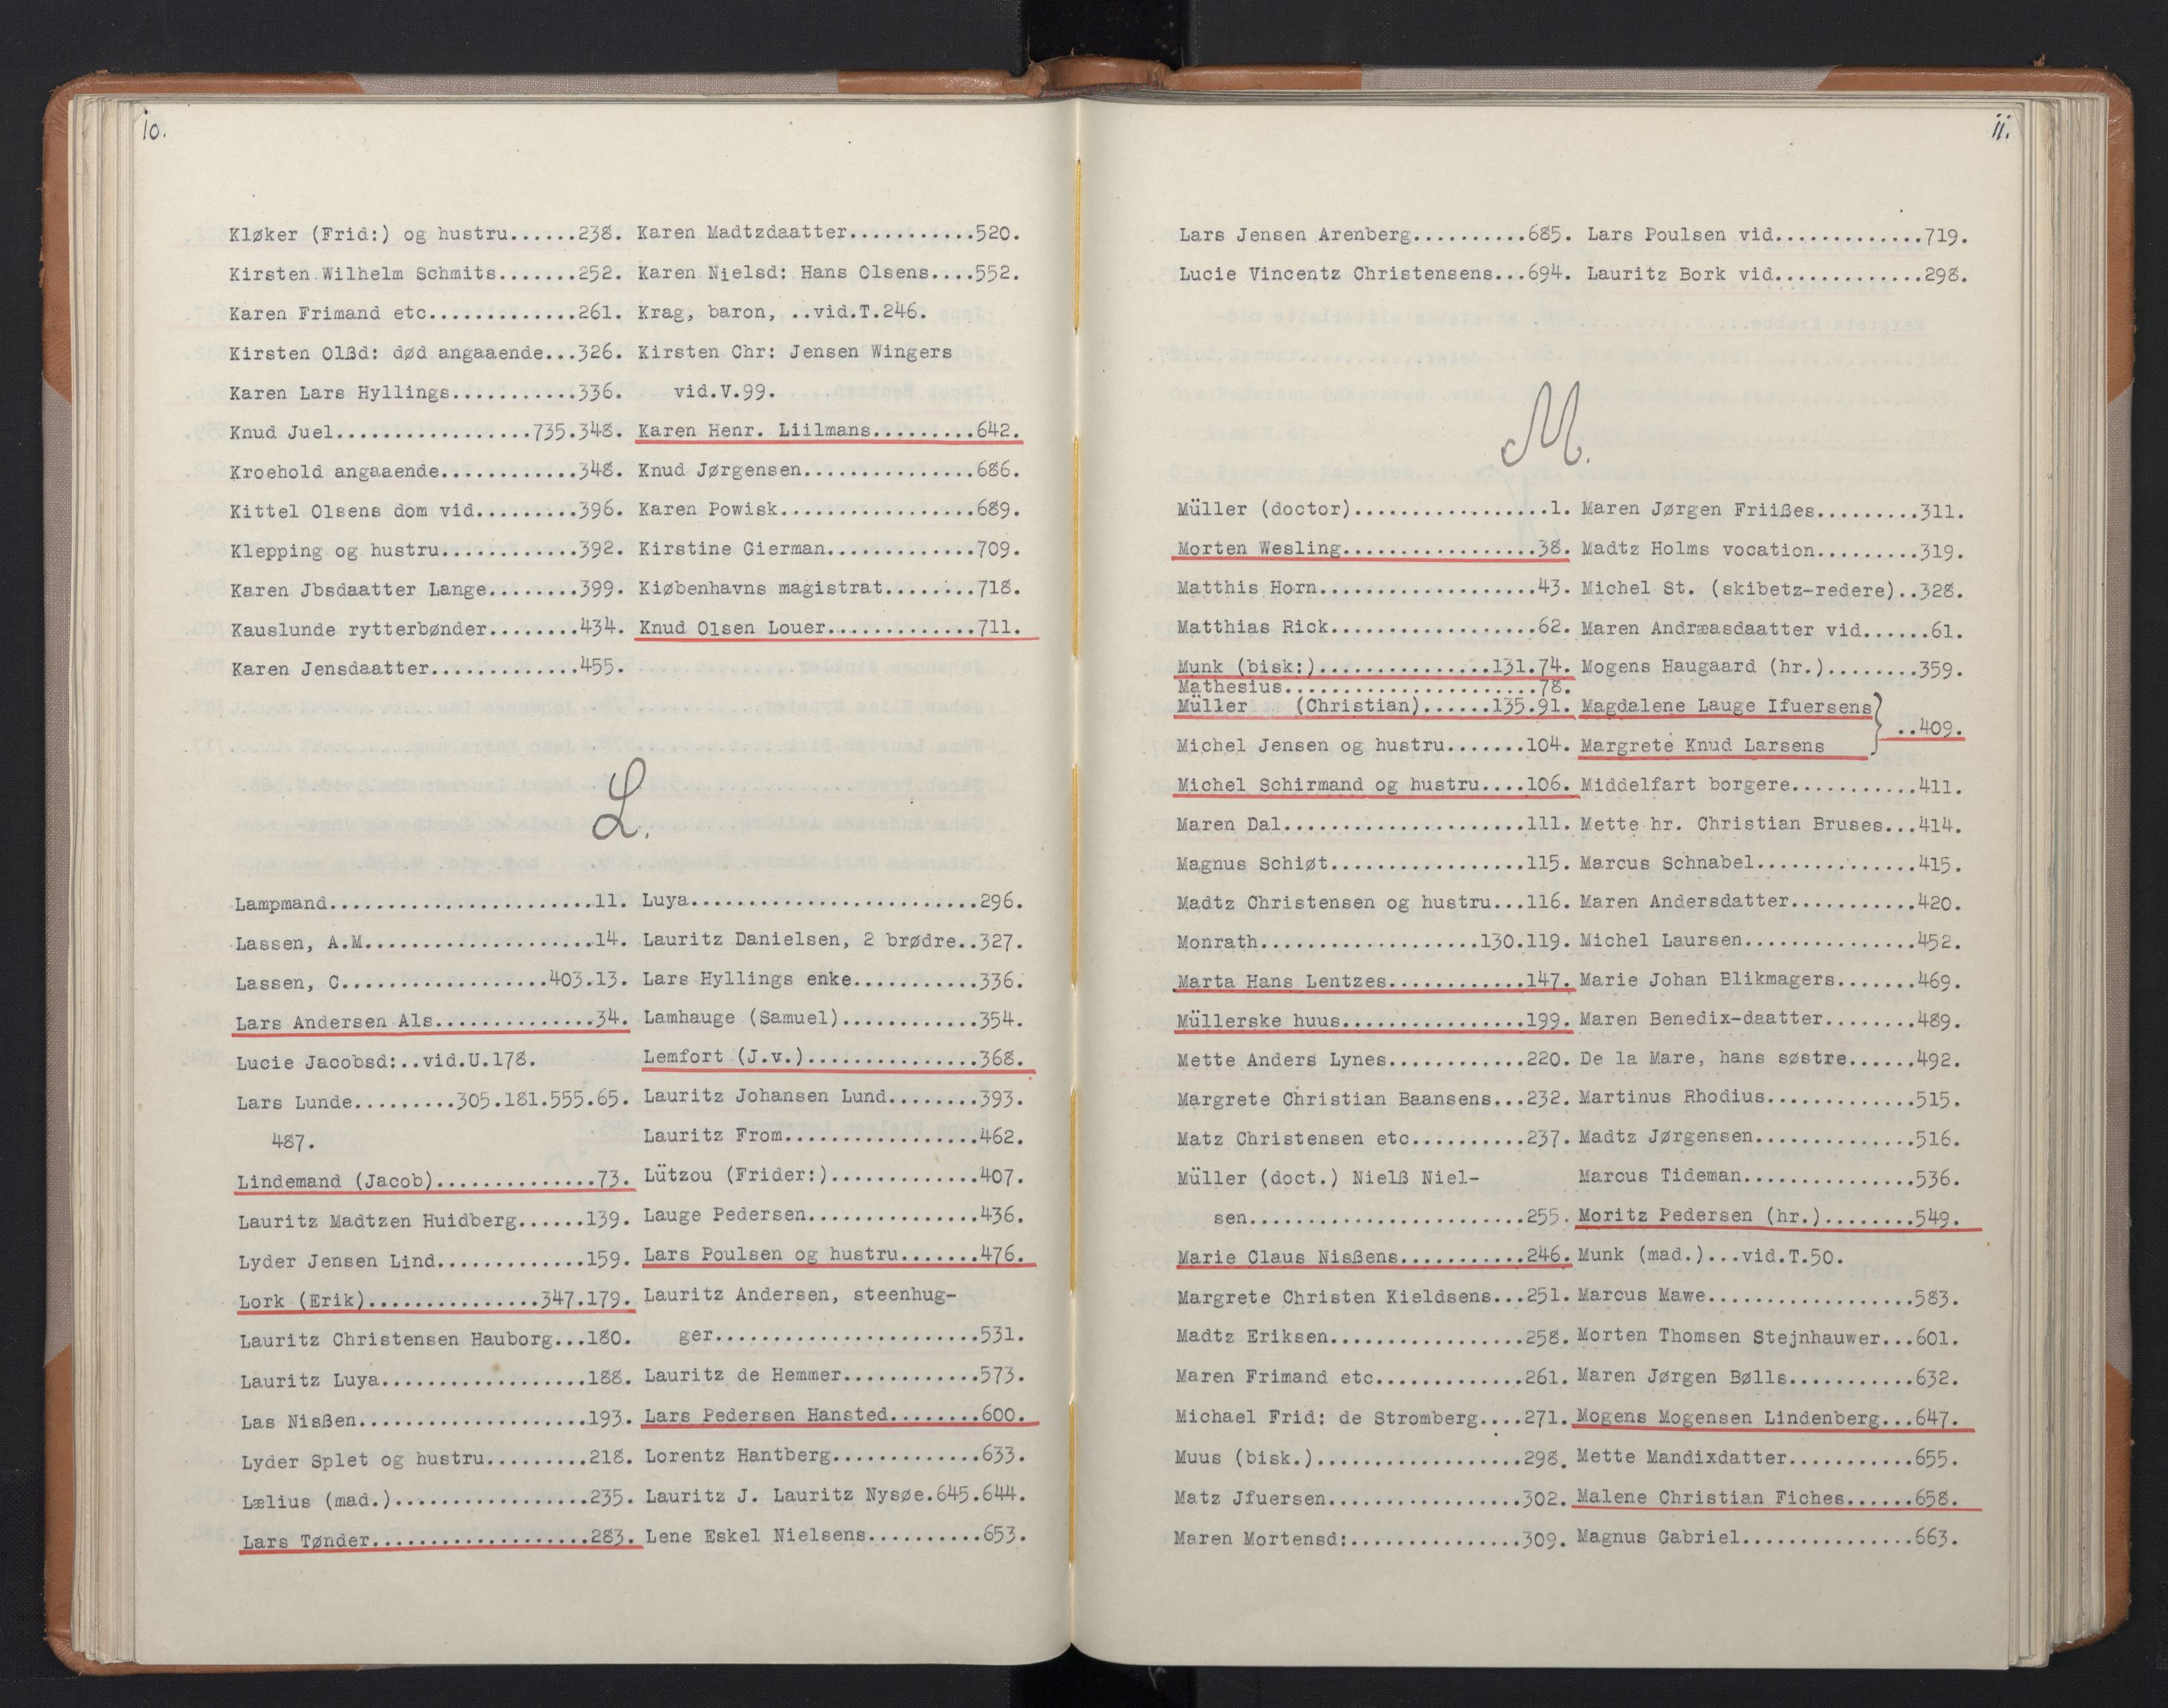 10.
Kløker (Frid:) og hustru......238.
Kirsten Wilhelm Schmits.......252.
Karen Frimand etc.............261.
Kirsten Olßd: død angaaende...326.
Karen Lars Hyllings...........336.
Knud Juel.................735.348.
Kroehold angaaende............348.
Kittel Olsens dom vid.........396.
Klepping og hustru............392.
Karen Jbsdaatter Lange........399.
Kauslunde rytterbønder........434.
Karen Jensdaatter.............455.
Karen Madtzdaatter...........520.
Karen Nielsd: Hans Olsens....552.
Krag, baron, ..vid.T.246.
Kirsten Chr: Jensen Wingers
vid.V.99.
Karen Henr. Liilmans.........642.
Knud Jørgensen...............686.
Karen Powisk.................689.
Kirstine Gierman.............709.
Kiøbenhavns magistrat........718.
Knud Olsen Louer.............711.
L.
Lampmand.......................11.
Lassen, A.M....................14.
Lassen, C..................403.13.
Lars Andersen Als..............34.
Lucie Jacobsd:..vid.U.178.
Lars Lunde.........305.181.555.65.
487.
Lindemand (Jacob)..............73.
Lauritz Madtzen Huidberg......139.
Lyder Jensen Lind.............159.
Lork (Erik)...............347.179.
Lauritz Christensen Hauborg...180.
Lauritz Luya..................188.
Las Nißen.....................193.
Lyder Splet og hustru.........218.
Lælius (mad.).................235.
Lars Tønder...................283.
Luya.........................296.
Lauritz Danielsen, 2 brødre..327.
Lars Hyllings enke...........336.
Lamhauge (Samuel)............354.
Lemfort (J.v.)...............368.
Lauritz Johansen Lund........393.
Lauritz From.................462.
Lützou (Frider:).............407.
Lauge Pedersen...............436.
Lars Poulsen og hustru.......476.
Lauritz Andersen, steenhug-
ger.......................531.
Lauritz de Hemmer............573.
Lars Pedersen Hansted........600.
Lorentz Hantberg.............633.
Lauritz J. Lauritz Nysøe.645.644.
Lene Eskel Nielsens..........653.
11.
Lars Jensen Arenberg..........685.
Lucie Vincentz Christensens...694.
Lars Poulsen vid.............719.
Lauritz Bork vid.............298.
M.
Müller (doctor).................1.
Morten Wesling.................38.
Matthis Horn...................43.
Matthias Rick..................62.
Munk (bisk:)...............131.74.
Mathesius......................78.
Müller (Christian)......135.91.
Michel Jensen og hustru.......104.
Michel Schirmand og hustru....106.
Maren Dal.....................111.
Magnus Schiøt.................115.
Madtz Christensen og hustru...116.
Monrath...................130.119.
Marta Hans Lentzes............147.
Müllerske huus................199.
Mette Anders Lynes............220.
Margrete Christian Baansens...232.
Matz Christensen etc..........237.
Müller (doct.) Nielß Niel-
sen........................255.
Marie Claus Nißens...........246.
Margrete Christen Kieldsens...251.
Madtz Eriksen.................258.
Maren Frimand etc.............261.
Michael Frid: de Stromberg....271.
Muus (bisk.)..................298.
Matz Jfuersen.................302.
Maren Mortensd:...............309.
Maren Jørgen Friißes.........311.
Madtz Holms vocation.........319.
Michel St. (skibetz-redere)..328.
Maren Andræasdaatter vid......61.
Mogens Haugaard (hr.)........359.
Magdalene Lauge Ifuersens
Margrete Knud Larsens
..409.
Middelfart borgere...........411.
Mette hr. Christian Bruses...414.
Marcus Schnabel..............415.
Maren Andersdatter...........420.
Michel Laursen...............452.
Marie Johan Blikmagers.......469.
Maren Benedix-daatter........489.
De la Mare, hans søstre......492.
Martinus Rhodius.............515.
Madtz Jørgensen..............516.
Marcus Tideman...............536.
Moritz Pedersen (hr.)........549.
Munk (mad.)...vid.T.50.
Marcus Mawe..................583.
Morten Thomsen Stejnhauwer...601.
Maren Jørgen Bølls...........632.
Mogens Mogensen Lindenberg...647.
Mette Mandixdatter...........655.
Malene Christian Fiches......658.
Magnus Gabriel...............663.